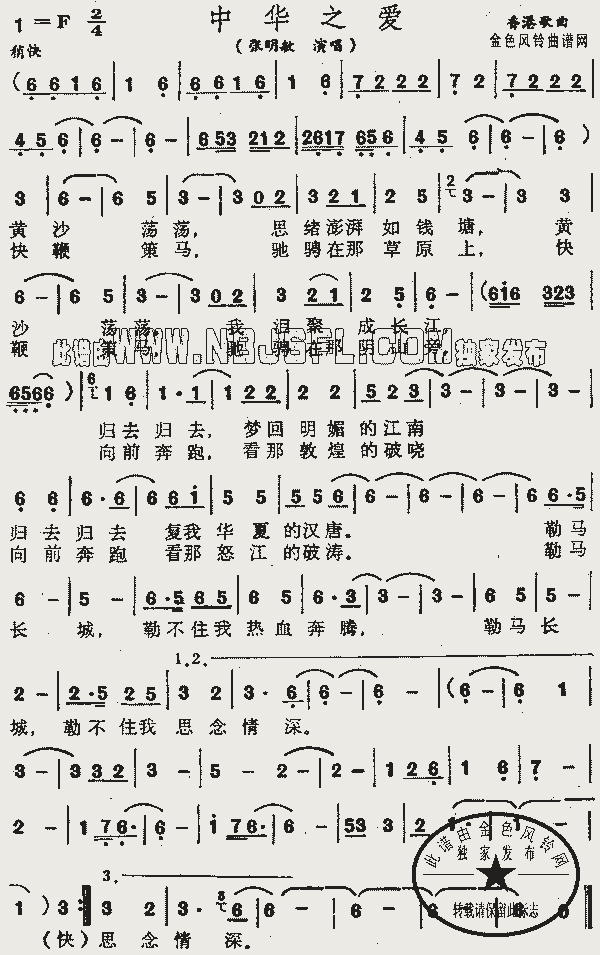 中华之爱
1=F 2/4
(张明敏 演唱)
香港歌曲
金色风铃曲谱网
稍快
(6 6 1 6 | 1 6 | 6 6 1 6 | 1 6 | 7 2 2 2 | 7 2 | 7 2 2 2 |
4 5 6 | 6 - | 6 - | 6 53 212 | 2617 656 | 4 5 6 | 6 - | 6 )
3 | 6 - | 6 5 | 3 - | 3 0 2 | 3 2 1 | 2 5 | 3 - | 3 3
黄沙 荡荡, 思绪澎湃如钱塘, 黄
快鞭 策马, 驰骋在那草原上, 快
6 - | 6 5 | 3 - | 3 0 2 | 3 2 1 | 2 5 | 6 - | (616 323
沙 荡荡, 我泪聚成长江,
鞭 策马, 驰骋在那阴山旁,
此谱由WWW.NBJSFL.COM独家发布
6566 ) | 1 6 | 1·1 | 1 2 2 | 2 2 | 5 2 3 | 3 - | 3 - | 3 -
归去归去, 梦回明媚的江南
向前奔跑, 看那敦煌的破晓
6 6 | 6·6 | 6 6 1 | 5 5 | 5 5 6 | 6 - | 6 - | 6 - | 6 6·5
归去归去 复我华夏的汉唐。 勒马
向前奔跑 看那怒江的破涛。 勒马
6 - | 5 - | 6·5 6 5 | 6 5 | 6·3 | 3 - | 3 - | 6 5 | 5 -
长城, 勒不住我热血奔腾, 勒马长
1.2.
2 - | 2·5 2 5 | 3 2 | 3·6 | 6 - | 6 - | (6 - | 6 1
城, 勒不住我思念情深。
3 - | 3 3 2 | 3 - | 5 - | 2 - | 2 - | 1 2 6 | 1 6 | 7 -
2 - | 1 7 6· | 6 - | 1 7 6· | 6 - | 53 3 | 2 1· | 1 -
此谱由金色风铃网
独家发布
转载请保留此标志
3.
1 ) 3 :‖ 3 2 | 3· 6 | 6 - | 6 - | 6 - | 6 0 ‖
(快)思念情深。